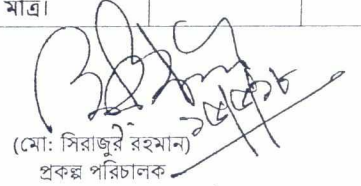 মাত্র।
(মো: সিরাজুর রহমান)
প্রকল্প পরিচালক